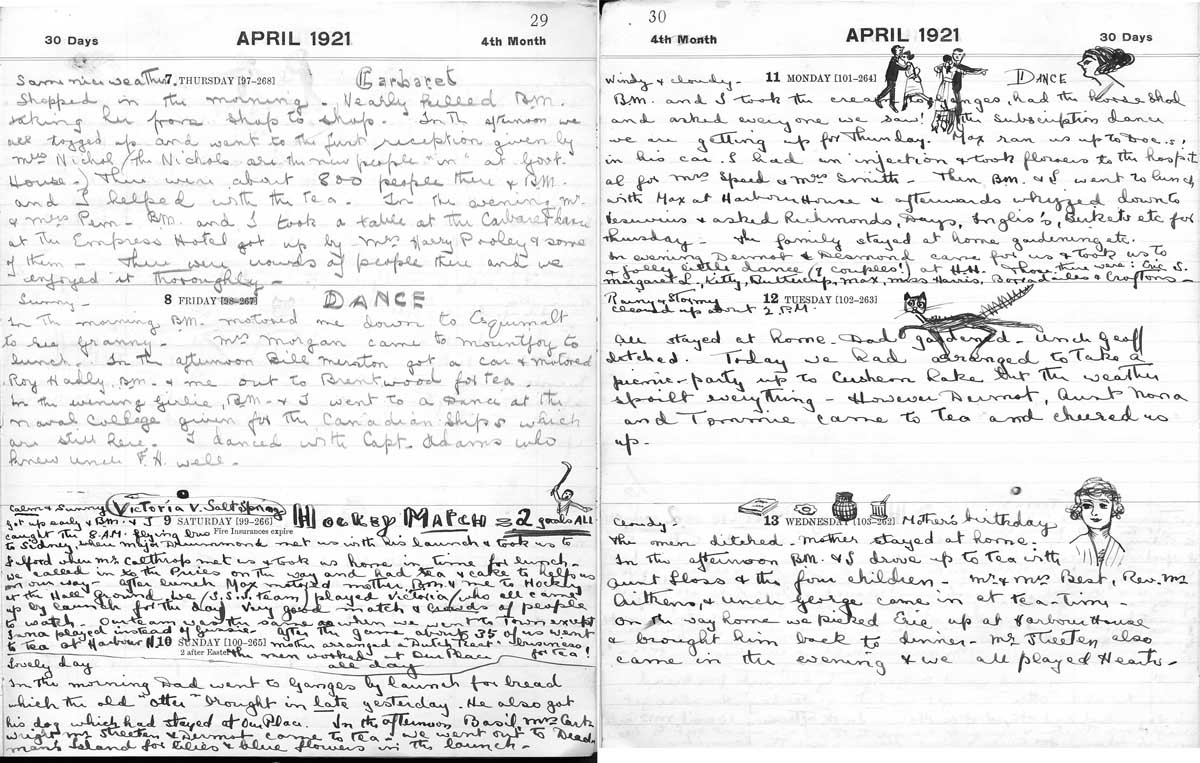 29
30 Days APRIL 1921 4th Month
Same nice weather 7 THURSDAY [97-268] Carbaret
Shopped in the morning. Nearly killed B.M.
taking her from shop to shop. In the afternoon we
all togged up and went to the first reception given by
Mrs Nichol (the Nichols are the new people "in" at Govt.
House.) There were about 800 people there & B.M.
and I helped with the tea. In the evening Mr.
& Mrs Penn- B.M. and I took a table at the Cabaret
at the Empress Hotel got up by Mrs Harry Pooley & some
of them - There were crowds of people there and we
enjoyed it thoroughly -
Sunny - 8 FRIDAY [98-267] DANCE
In the morning B.M. motored me down to Esquimalt
to see granny - Mrs Morgan came to Mountjoy to
lunch. In the afternoon Bill got a car & motored
Roy B.M. & me out to Brentwood for tea.
In the evening Girlie, B.M. & I went to a dance at the
naval College given for the Canadian Ships which
are still here. I danced with Capt. Adams who
knew uncle F.H. well.
Calm & Sunny Victoria V. Salt Spring
got up early & B.M. & I 9 SATURDAY [99-266] HOCKEY MATCH = 2 goals ALL
caught the 8 A.M. flying line Fire Insurances expire
to Sidney where Miss Drummond met us with his launch & took us to
Fulford where Mr Calthrop met us & took us home in time for lunch -
we called in to the Prices on the way and had tea & cake to help us
on our way - After lunch Max motored mother, B.M. & me to Hockey
at the Hall ground. We (S.S.I. team) played Victoria (who all came
up by launch for the day) Very good match & crowds of people
to watch. Our team was the same as when we went to Town except
played instead of . After the game about 35 of us went
to tea at Harbour H. 10 SUNDAY [100-265] mother arranged a Dutch Treat business!
2 after Easter the men worked at Our Place for tea
Lovely day all day
In the morning Dad went to Ganges by launch for bread
which the old "Otter" brought in late yesterday. He also got
his dog which had stayed at Our Place. In the afternoon Basil, Mrs Cart-
wright Mr Streeten & Dermot came to tea & we went out to Dead-
man's Island for lilies & blue flowers in the launch -
30
4th Month APRIL 1921 30 Days
Windy & cloudy - 11 MONDAY [101-264] DANCE
B.M. and I took the cream to Ganges, had the horse shod
and asked everyone we saw! to the subscription dance
we are getting up for Thursday. Max ran us up to Docs..!
in his car. I had an injection & took flowers to the hospit
al for Mrs Speed & Mrs Smith - Then B.M. & I went to lunch
with Max at Harbour House & afterwards whizzed down to
Vesuvius & asked Richmonds, Days, Inglis's, etc for
Thursday - The family stayed at home gardening etc.
In evening Dermot & Desmond came for us & took us to
a jolly little dance (9 couples!) at H.H. Those there were: Eric S.
Margaret L., Kitty, Buttercup, Max, Miss Harris, Borradailes & Croftons -
Rainy & Stormy 12 TUESDAY [102-263]
cleared up about 2 P.M.
All stayed at home. Dad gardened. Uncle Geoff
ditched. Today we had arranged to take a
picnic-party up to Cusheon Lake but the weather
spoilt everything - However Dermot, Aunt Nona
and Tommie came to tea and cheered us
up -
Cloudy. 13 WEDNESDAY [103-262] Mother's birthday
The men ditched - Mother stayed at home.
In the afternoon B.M. & I drove up to tea with
Aunt Floss & the four children - Mr & Mrs Best, Rev. Mr
Aitkens, & Uncle George came in at tea-time -
On the way home we picked Eric up at Harbour House
& brought him back to dinner - Mr Streeten also
came in the evening & we all played Hearts -